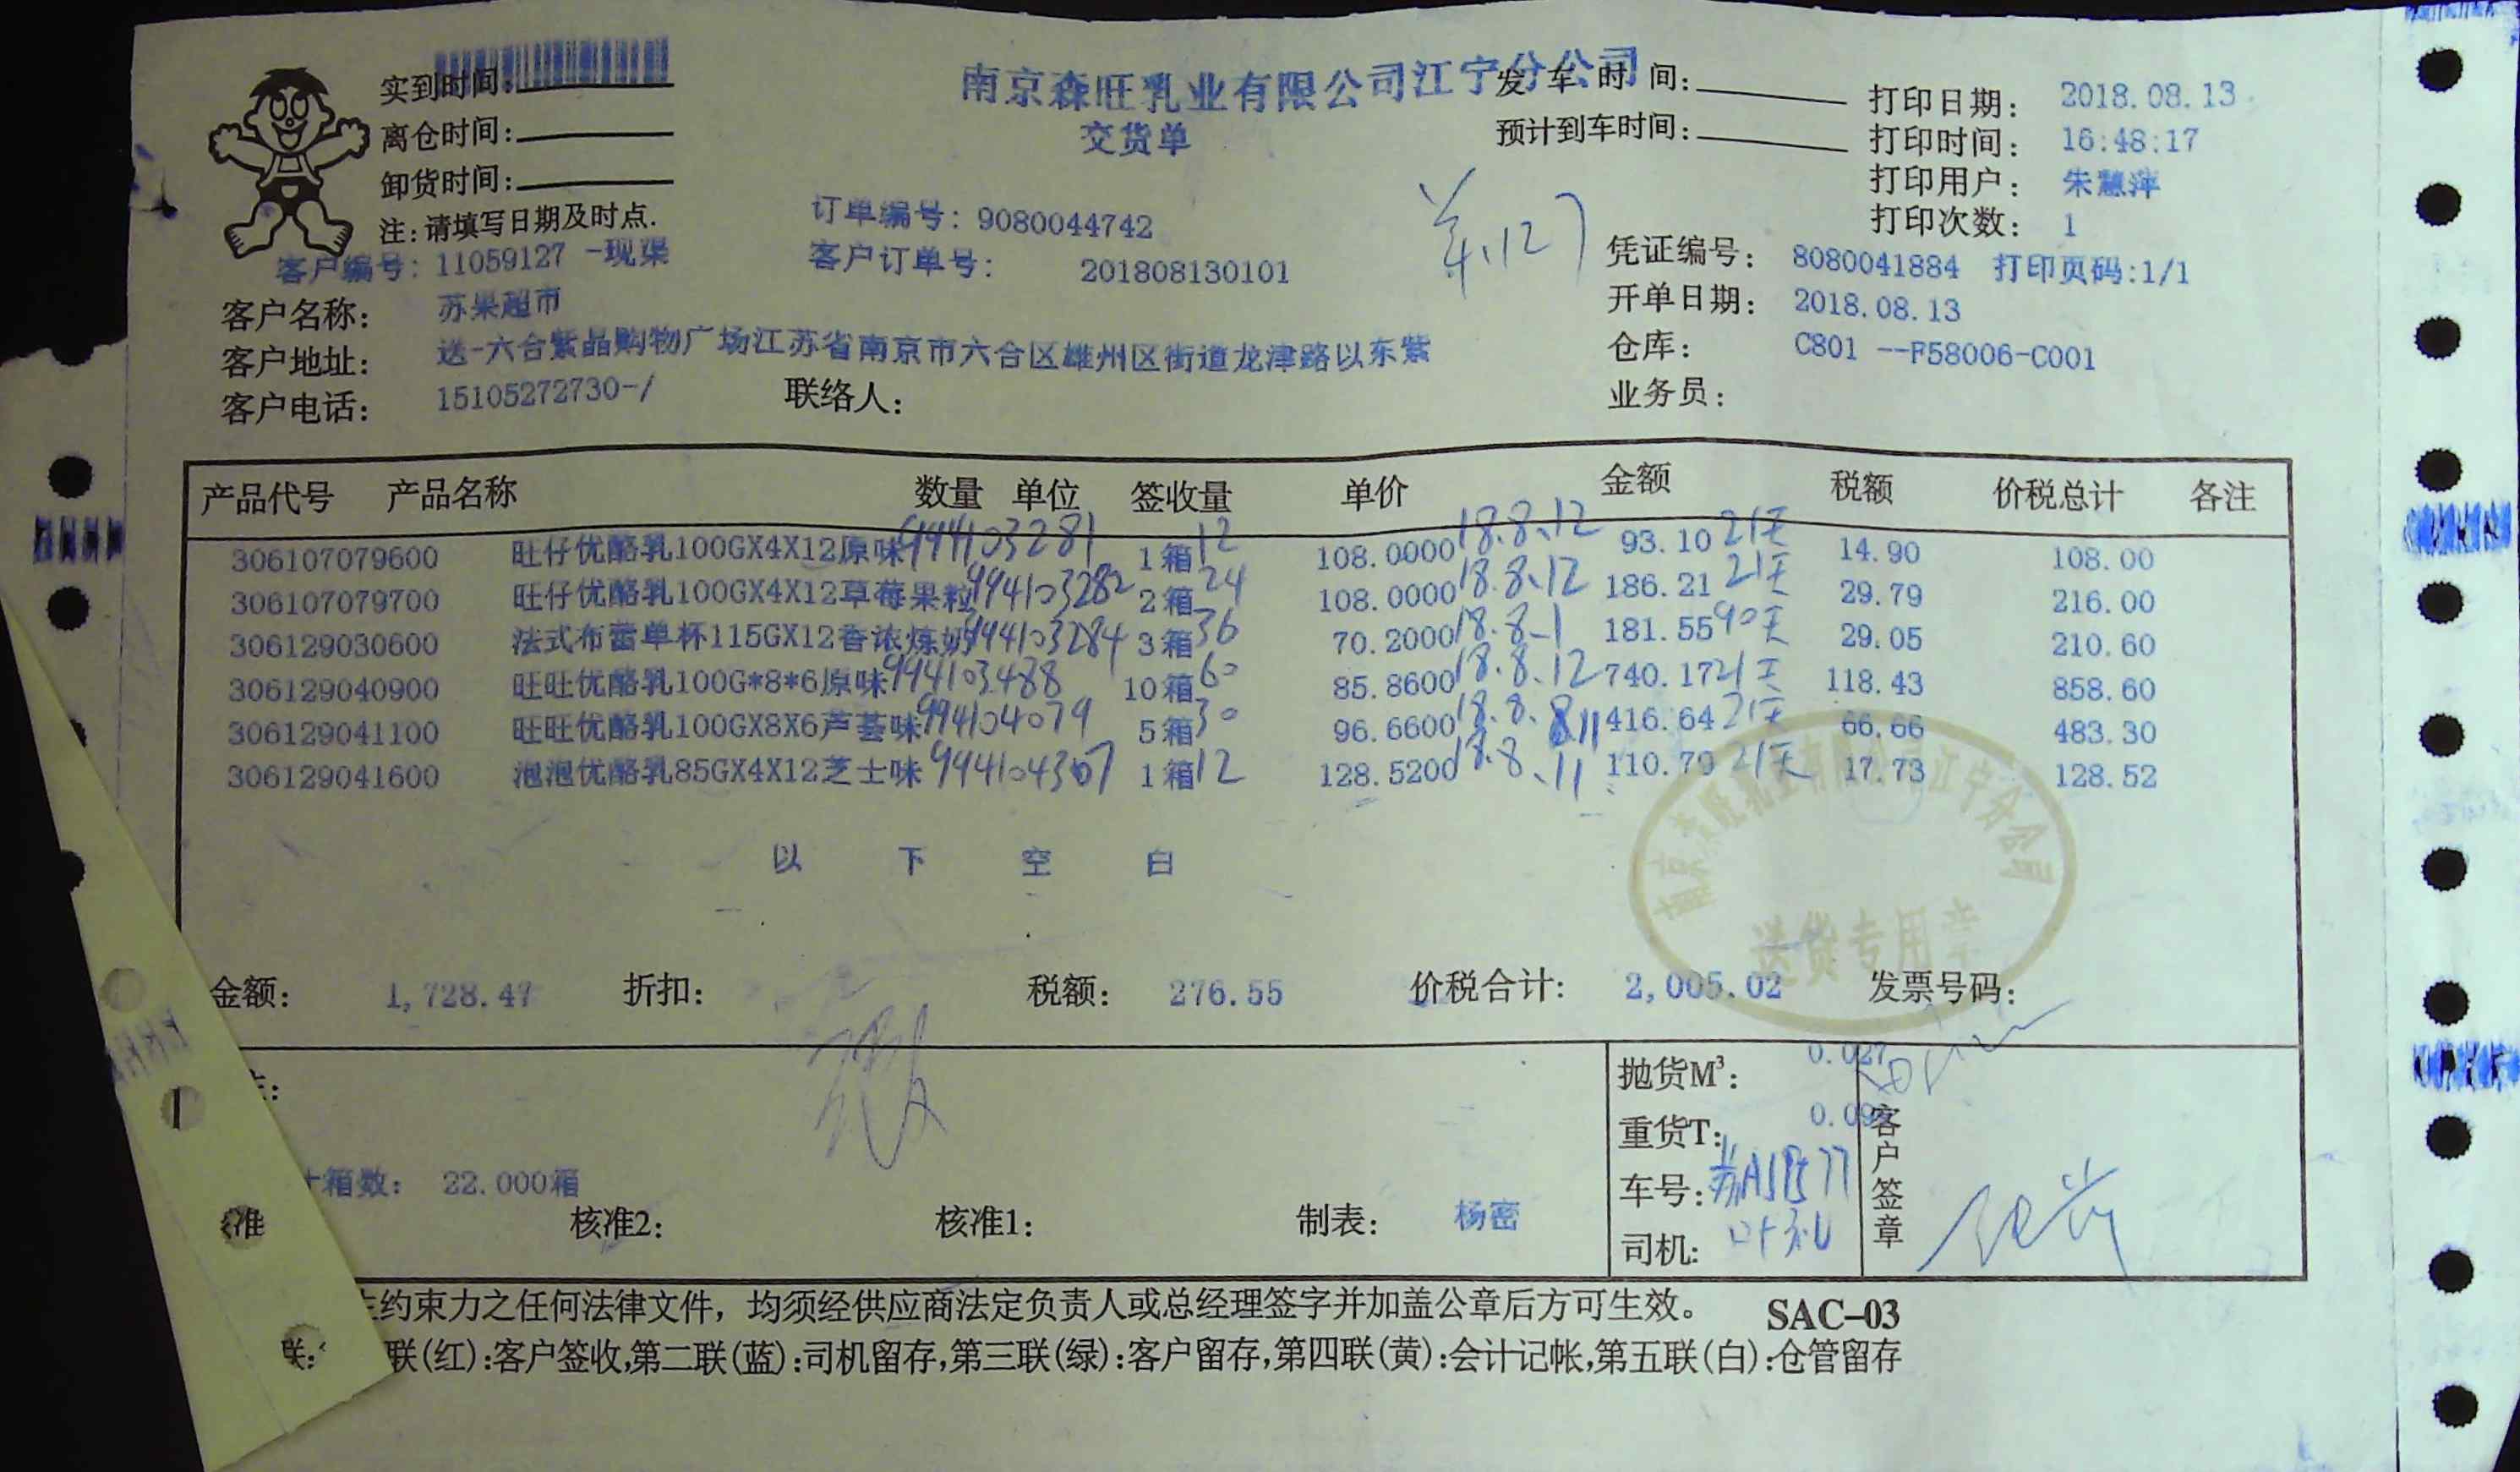 实到时间: 南京森旺乳业有限公司江宁分公司 发车时间: 打印日期: 2018.08.13
离仓时间: 交货单 预计到车时间: 打印时间: 16:48:17
卸货时间: 打印用户: 朱慧萍
注:请填写日期及时点. 订单编号: 9080044742 打印次数: 1
客户编号: 11059127 -现渠 客户订单号: 201808130101 凭证编号: 8080041884 打印页码:1/1
客户名称: 苏果超市 开单日期: 2018.08.13
客户地址: 送-六合紫晶购物广场江苏省南京市六合区雄州区街道龙津路以东紫 仓库: C801 --F58006-C001
客户电话: 15105272730-/ 联络人: 业务员:
产品代号 产品名称 数量 单位 签收量 单价 金额 税额 价税总计 各注
306107079600 旺仔优酪乳100GX4X12原味 994103281 1箱 12 108.0000 18.8.12 93.10 21天 14.90 108.00
306107079700 旺仔优酪乳100GX4X12草莓果粒 994103282 2箱 24 108.0000 18.8.12 186.21 21天 29.79 216.00
306129030600 法式布蕾单杯115GX12香浓炼奶 994103284 3箱 36 70.2000 18.8-1 181.55 90天 29.05 210.60
306129040900 旺旺优酪乳100G*8*6原味 994103488 10箱 60 85.8600 18.8.12 740.17 21天 118.43 858.60
306129041100 旺旺优酪乳100GX8X6芦荟味 994104079 5箱 30 96.6600 18.8.11 416.64 21天 66.66 483.30
306129041600 泡泡优酪乳85GX4X12芝士味 994104307 1箱 12 128.5200 18.8.11 110.79 21天 17.73 128.52
以 下 空 白
南京森旺乳业有限公司江宁分公司
送货专用章
金额: 1,728.47 折扣: 税额: 276.55 价税合计: 2,005.02 发票号码:
抛货M³: 0.027
重货T: 0.09
箱数: 22.000箱 车号:
准 核准2: 核准1: 制表: 杨密 司机: 客户签章
约束力之任何法律文件，均须经供应商法定负责人或总经理签字并加盖公章后方可生效。 SAC-03
联: 联(红):客户签收,第二联(蓝):司机留存,第三联(绿):客户留存,第四联(黄):会计记帐,第五联(白):仓管留存